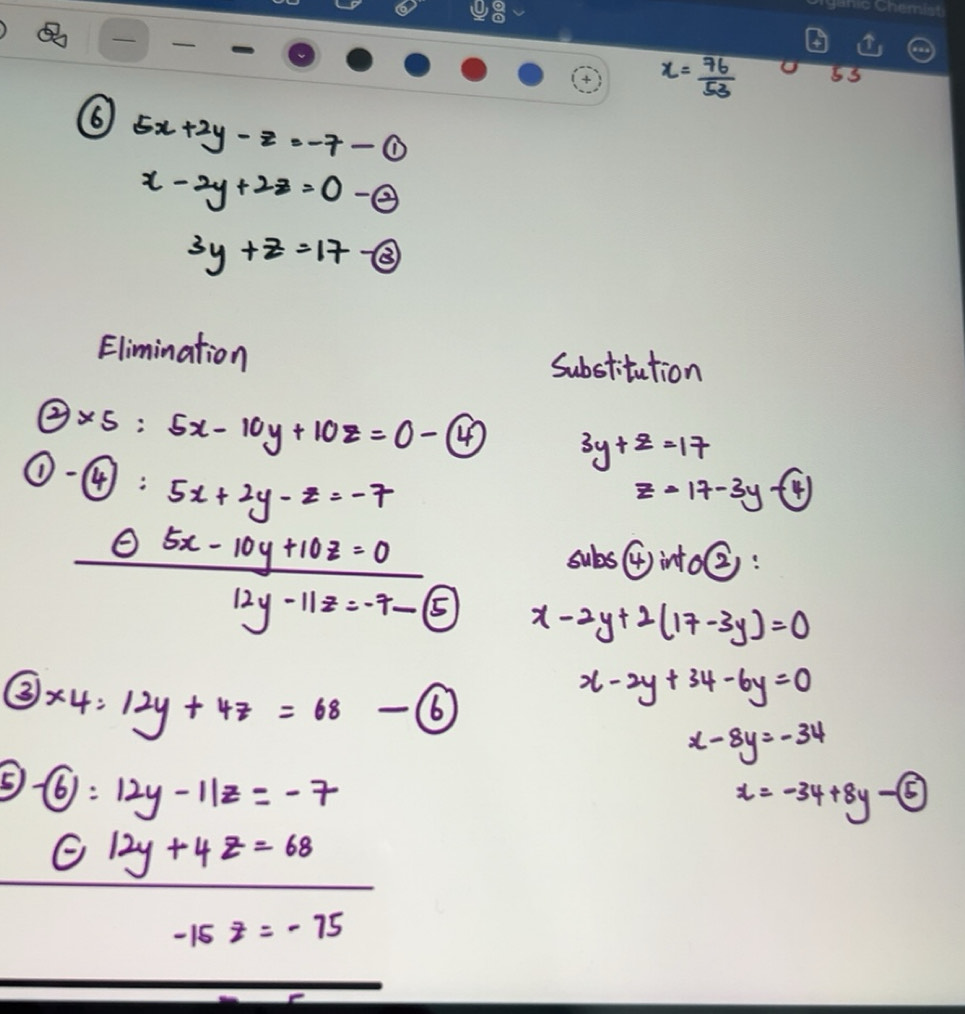 Organic Chemist
x = 76/53
53
⑥ 5x + 2y - z = -7 - ①
x - 2y + 2z = 0 - ②
3y + z = 17 - ③
Elimination
② × 5 : 5x - 10y + 10z = 0 - ④
① - ④ : 5x + 2y - z = -7
⊖ 5x - 10y + 10z = 0
12y - 11z = -7 - ⑤
③ × 4 : 12y + 4z = 68 - ⑥
⑤ - ⑥ : 12y - 11z = -7
⊖ 12y + 4z = 68
-15z = -75
Substitution
3y + z = 17
z = 17 - 3y - ④
subs ④ into ② :
x - 2y + 2(17 - 3y) = 0
x - 2y + 34 - 6y = 0
x - 8y = -34
x = -34 + 8y - ⑤